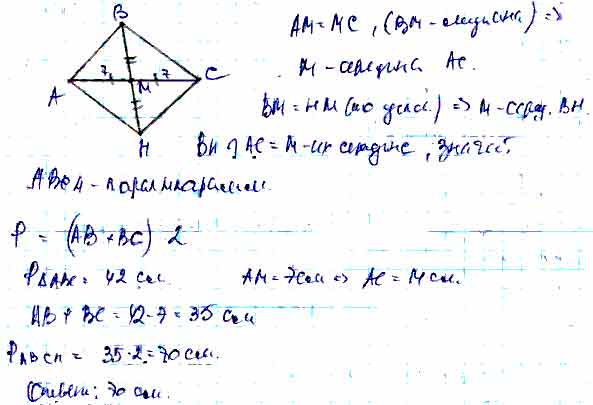 B
A
M
C
H
7
7
AM = MC, (BM - медиана) =>
M - середина AC.
BM = HM (по усл.) => M - серед. BH.
BH ∩ AC = M - их середине, значит
ABCH - параллелограмм.
P = (AB + BC) 2
P△ABC = 42 см. AM = 7 см => AC = 14 см.
AB + BC = 42 - 7 = 35 см
PABCH = 35 · 2 = 70 см.
Ответ: 70 см.